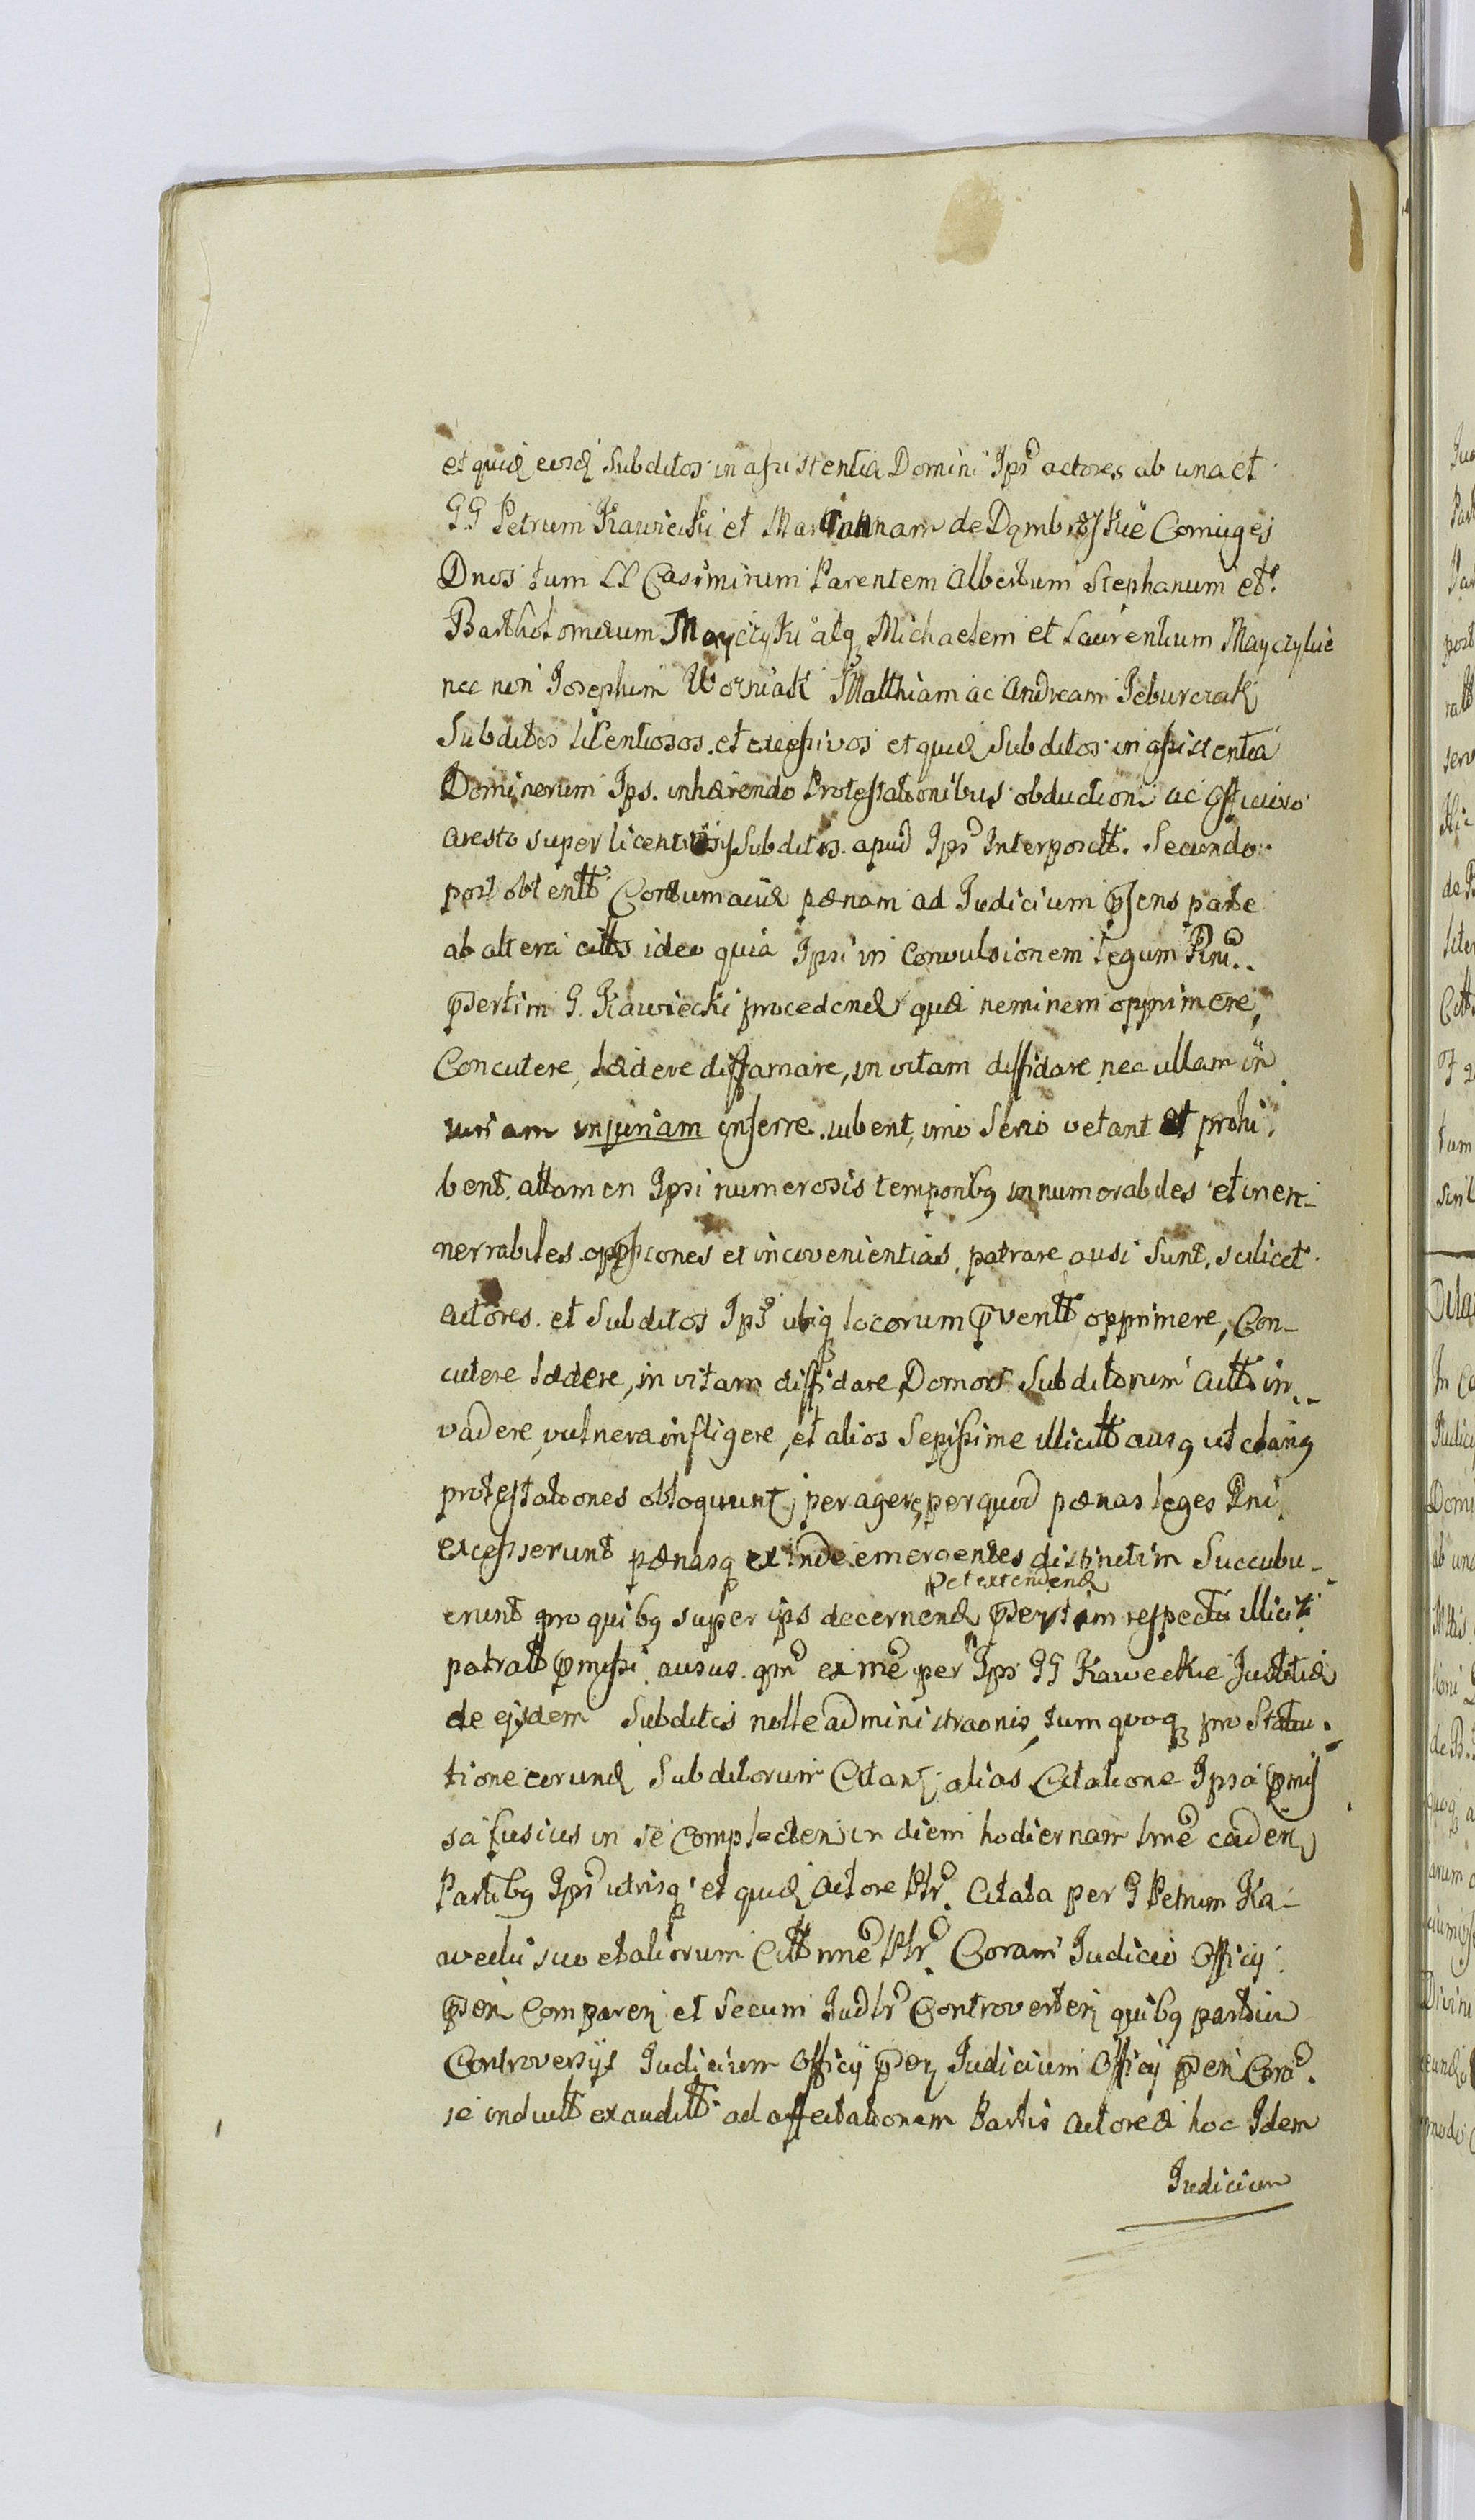 et quid eosd Subditos in assistentia Domini Ips actores ab una et
GG Petrum Kawiecki et Mariannam de Dąmbrosskie Coniuges
Dnos tum LL Casimirum Parentem Albertum Stephanum et
Bartholomæum Mayczyki atq Michaelem et Laurentium Mayczykie
nec non Josephum Wozniak Matthiam ac Andream Jeburczak
Subditos licentiosos et excessivos et quid Subditos in assistentia
Dominorum Ips. inhærendo Protestationibus obductioni ac officioso
aresto super licentiosis Subditos apud Ips Interposctt. Secundo
post obtentt Contumaciæ pænam ad Judicium psens parte
ab altera citts ideo quia Ipsi in Convulsionem legum Rni
psertim G. Kawiecki procedend quæ neminem opprimere,
Concutere, lædere diffamare, in vitam diffidare nec ullam in
iuriam injuriam inferre iubent, imo Serio vetant et prohi
bent. attamen Ipsi numerosis temporibg innumorabiles et inen-
nerrabiles oppsiones et incovenientias patrare ausi sunt, scilicet
actores et Subditos Ips ubiq locorum pventt opprimere, Con-
cutere lædere, in vitam diffidare, Domos Subditorum Actt in-
vadere, vulnera infligere, et alios Sepissime illicitt ausg ut clang
protestationes obloquunt, peragere, per quod pænas leges Rni
excesserunt pænasq exinde emergentes distinctim Succubu-
pt extendend
erunt pro quibg super ips decernend psertim respectu illiciti
patratt pmissi ausus qm ex me per Ips GG Kaweckie Justitiæ
de ejsdem Subditis nolle administraonis, tum quoq pro Statu-
tione eorund Subditorum Citanz alias Citatione Ipsa pmis
sa fusius in se complecten in diem hodiernam lme caden
Partibg Ips utrisq et quid Actore Ptr. Citata per G Petrum Ka-
wecki suo et aliorum Citt nne Ptr. Coram Judicio Officij
psen Comparen et Secum Judlr Controverten quibg partiu
Controversijs Judicium Officij psen Judicium Officij psen Cora
se induclt exauditt ad affectationem Partis Actoreæ hoc Idem
Judicium